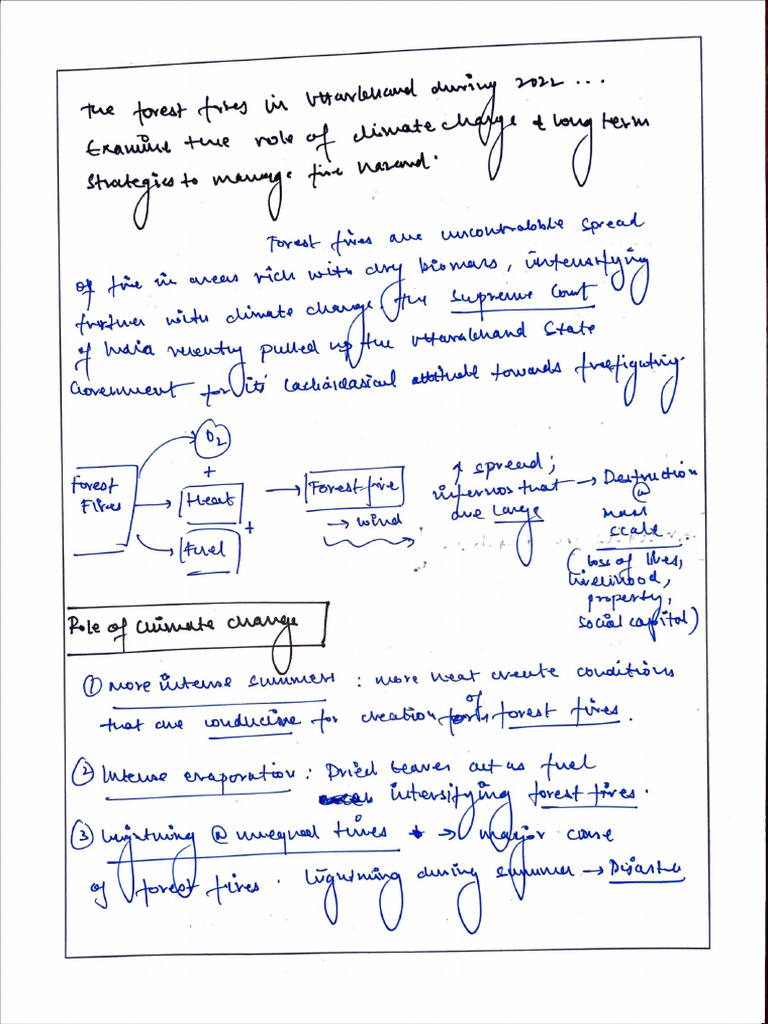 The forest fires in Uttarakhand during 2022 ...
Examine the role of climate change & long term
strategies to manage fire hazard.
Forest fires are uncontrollable spread
of fire in areas rich with dry biomass, intensifying
further with climate change. The Supreme Court
of India recently pulled up the Uttarakhand State
Government for its' lackadaisical attitude towards firefighting.
Forest Fires
O2
+
Heat
+
Fuel
→ Forest fire
→ wind
↑ spread;
infernos that
are large
→ Destruction
@
mass
scale
(loss of lives,
livelihood,
property,
social capital)
Role of Climate Change
① More intense summers : more heat create conditions
that are conducive for creation of forest fires.
② Intense evaporation : Dried leaves act as fuel
intensifying forest fires.
③ Lightning @ unequal times → major cause
of forest fires. Lightning during summer → Disaster